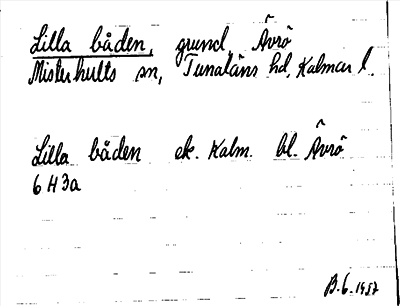 Lilla båden, grund, Ävrö
Misterhults sn, Tunaläns hd, Kalmar l.
Lilla båden ek. Kalm. bl. Ävrö
6 H 3a
B.G. 1957